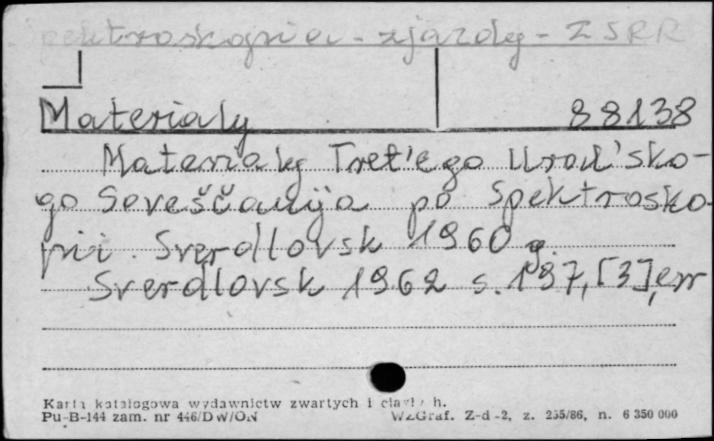 Spektroskopia - zjazdy - ZSRR
Materialy 88138
Materialy Tret'ego Ural'sko-
go Soveščanija po Spektrosko-
pii. Sverdlovsk 1960 g.
Sverdlovsk 1962 s. 197, [3], err
Karta katalogowa wydawnictw zwartych i ciągłych.
Pu-B-144 zam. nr 446/DW/ON WZGraf. Z-d-2, z. 255/86, n. 6 350 000